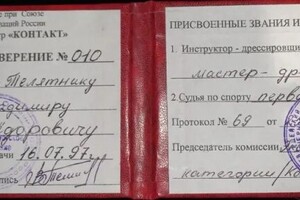 при Союзе
России
р «КОНТАКТ»
ВЕРЕНИЕ № 010
Телятнику
димиру
доровичу
16.07.97г
пись
ПРИСВОЕННЫЕ ЗВАНИЯ И
1. Инструктор - дрессировщи
мастер - др
2. Судья по спорту перво
Протокол № 69 от
Председатель комиссии
категории/